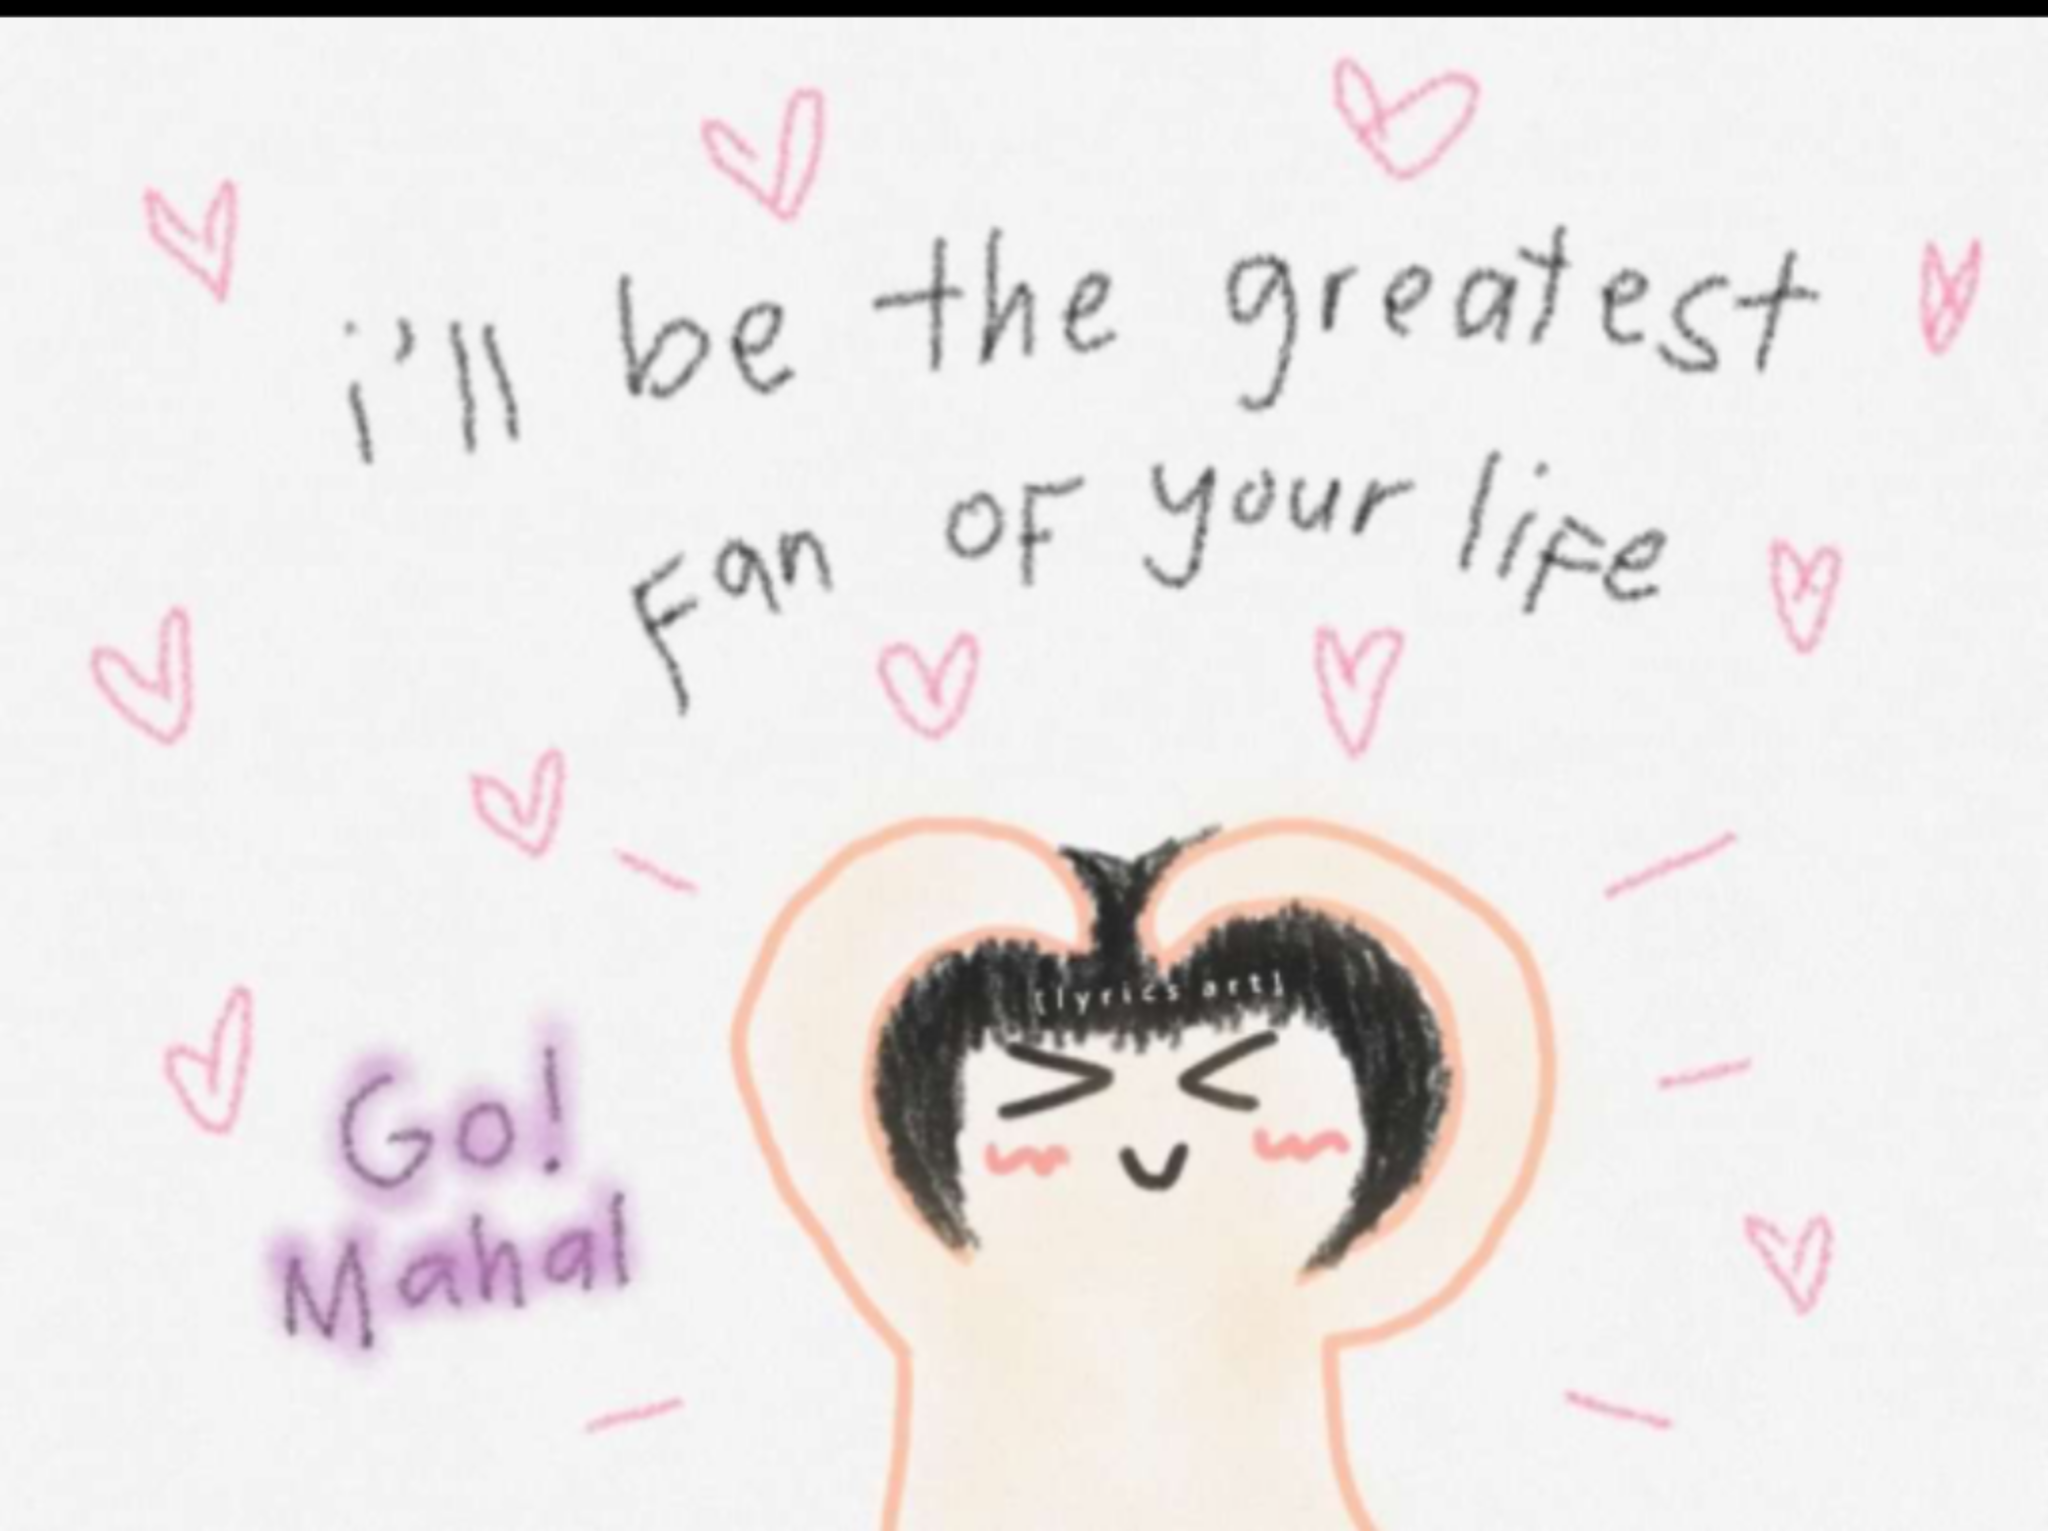 i'll be the greatest
Fan oF your liFe
[lyrics art]
Go!
Mahal